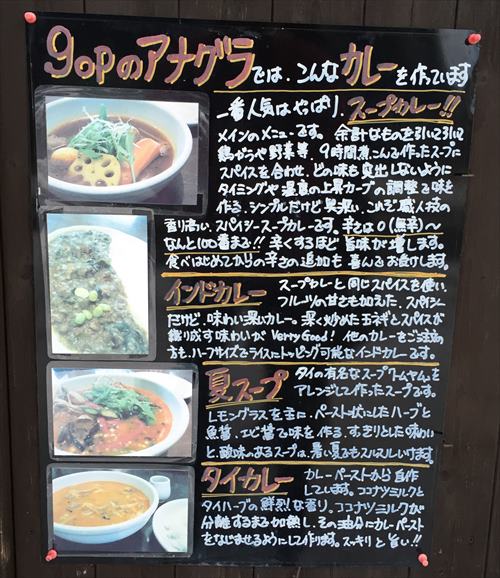 gopのアナグラでは、こんなカレーを作っています
一番人気はやっぱり、スープカレー!!
メインのメニューです。余計なものを引いて引いて
鶏ガラや野菜等、9時間煮こんで作ったスープに
スパイスを合わせ、どの味も突出しないように
タイミングや温度の上昇カーブの調整で味を
作る、シンプルだけど奥深い、これぞ職人技の
香り高い、スパイシースープカレーです。辛さは0(無辛)〜
なんと100番まで!! 辛くするほど旨味が増します。
食べはじめてからの辛さの追加も喜んでお受けします。
インドカレー
スープカレーと同じスパイスを使い、
フルーツの甘さを加えた、スパイシー
だけど、味わい深いカレー。深く炒めた玉ネギとスパイスが
織り成す味わいが Verry Good! 他のカレーをご注文の
方も、ハーフサイズでライスにトッピング可能なインドカレーです。
夏スープ
タイの有名なスープ「トムヤム」を
アレンジして作ったスープです。
レモングラスを主に、ペースト状にしたハーブと
魚醤、エビ醤で味を作る、すっきりとした味わい
と、酸味のあるスープは、暑い夏でもスルスルいけます
タイカレー
カレーペーストから自作
しています。ココナツミルクと
タイハーブの鮮烈な香り。ココナツミルクが
分離するまで加熱し、その油分にカレーペースト
をなじませるようにして作ります。スッキリと旨い!!